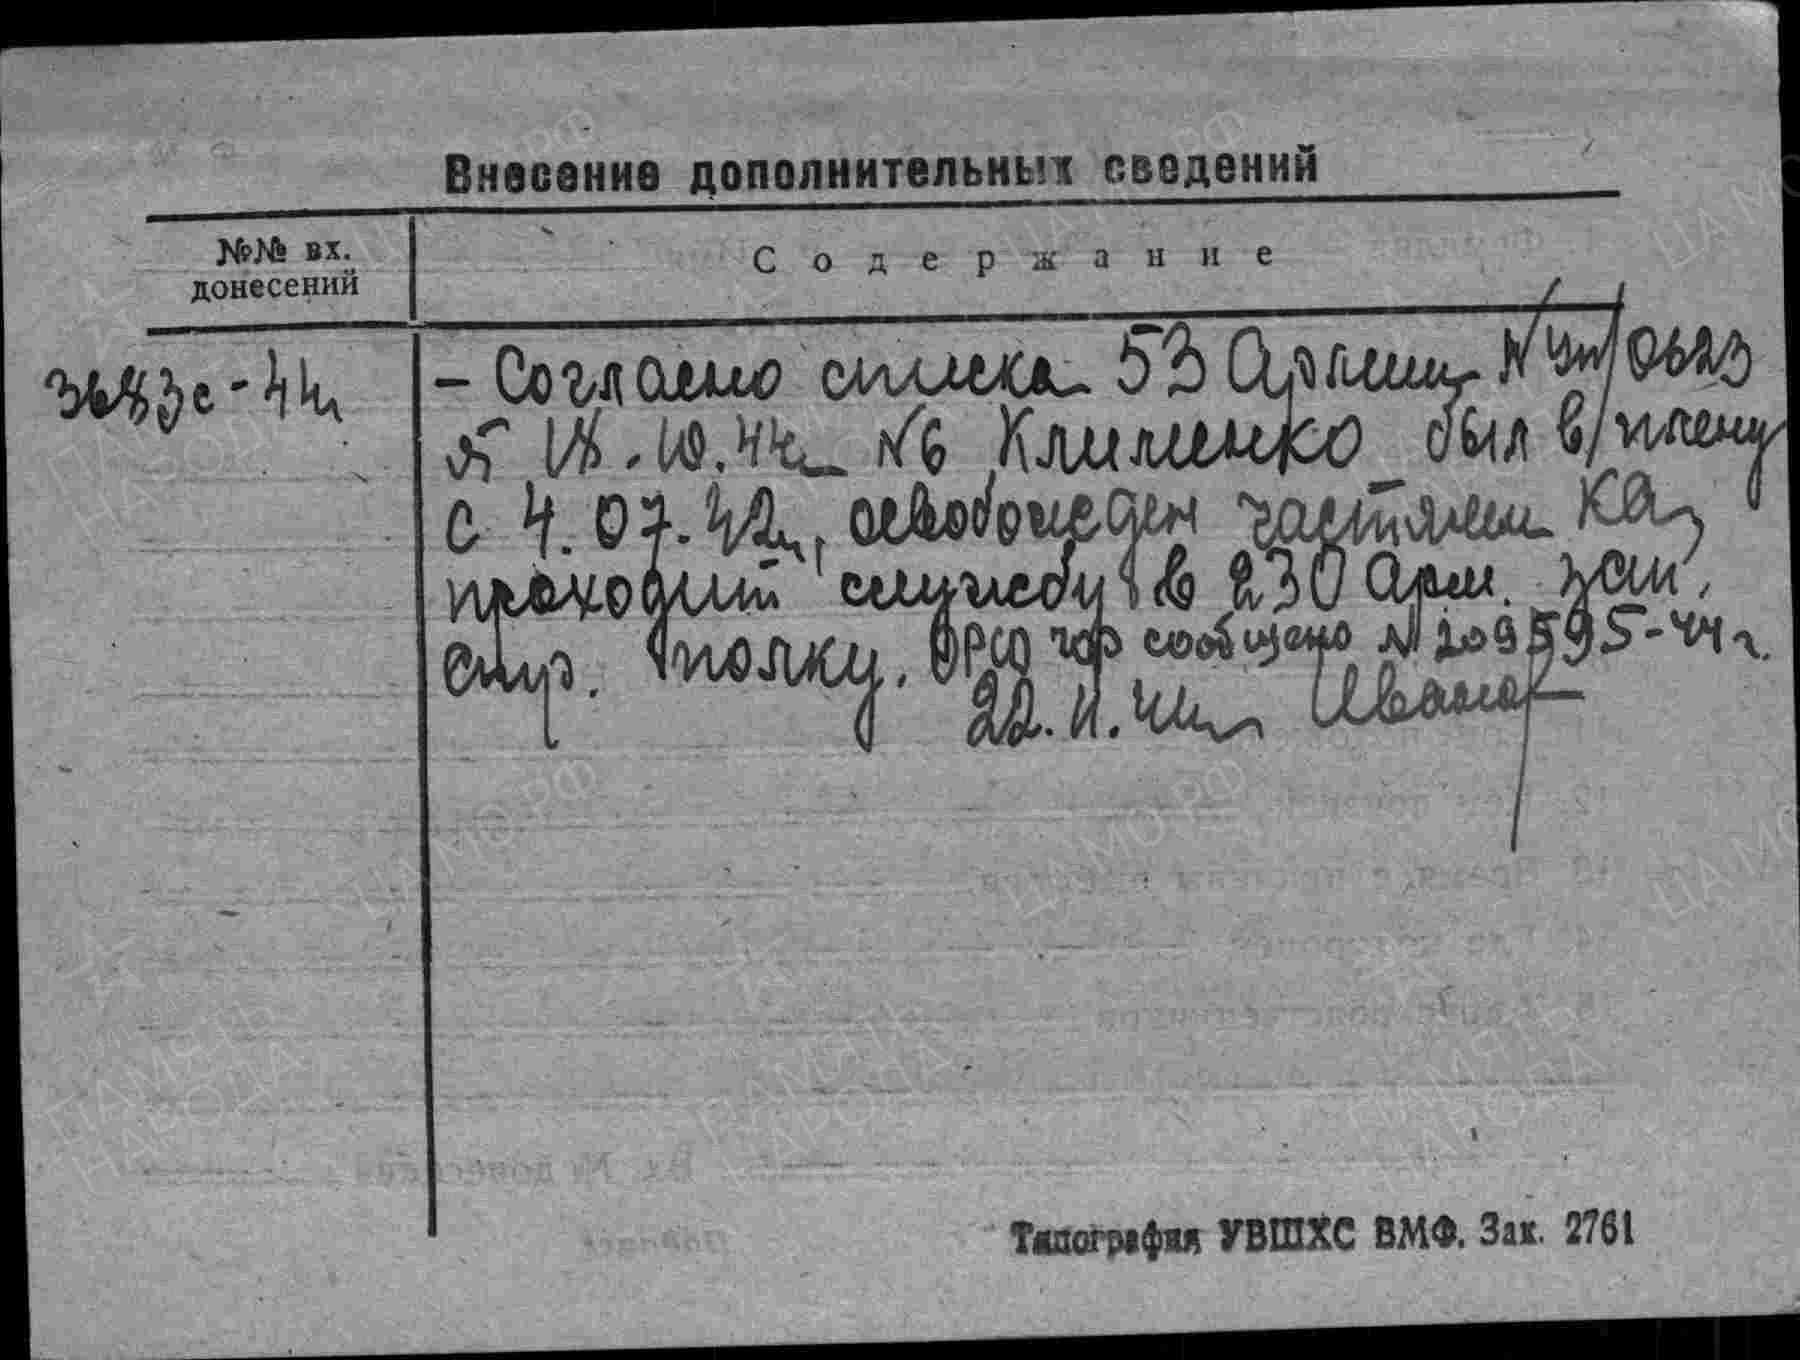 Внесение дополнительных сведений
№№ вх. донесений
Содержание
3683с-44г
- Согласно списка 53 Армии N Уп/0623
от 18.10.44г N6 Клименко был в/плену
с 4.07.42г, освобожден частями КА,
проходит службу в 230 Арм. зап.
стр. полку. ОРСО гор сообщено N 209595-44г.
22.11.44г Иванов
Типография УВШХС ВМФ. Зак. 2761
ПАМЯТЬ НАРОДА
ЦАМО.РФ